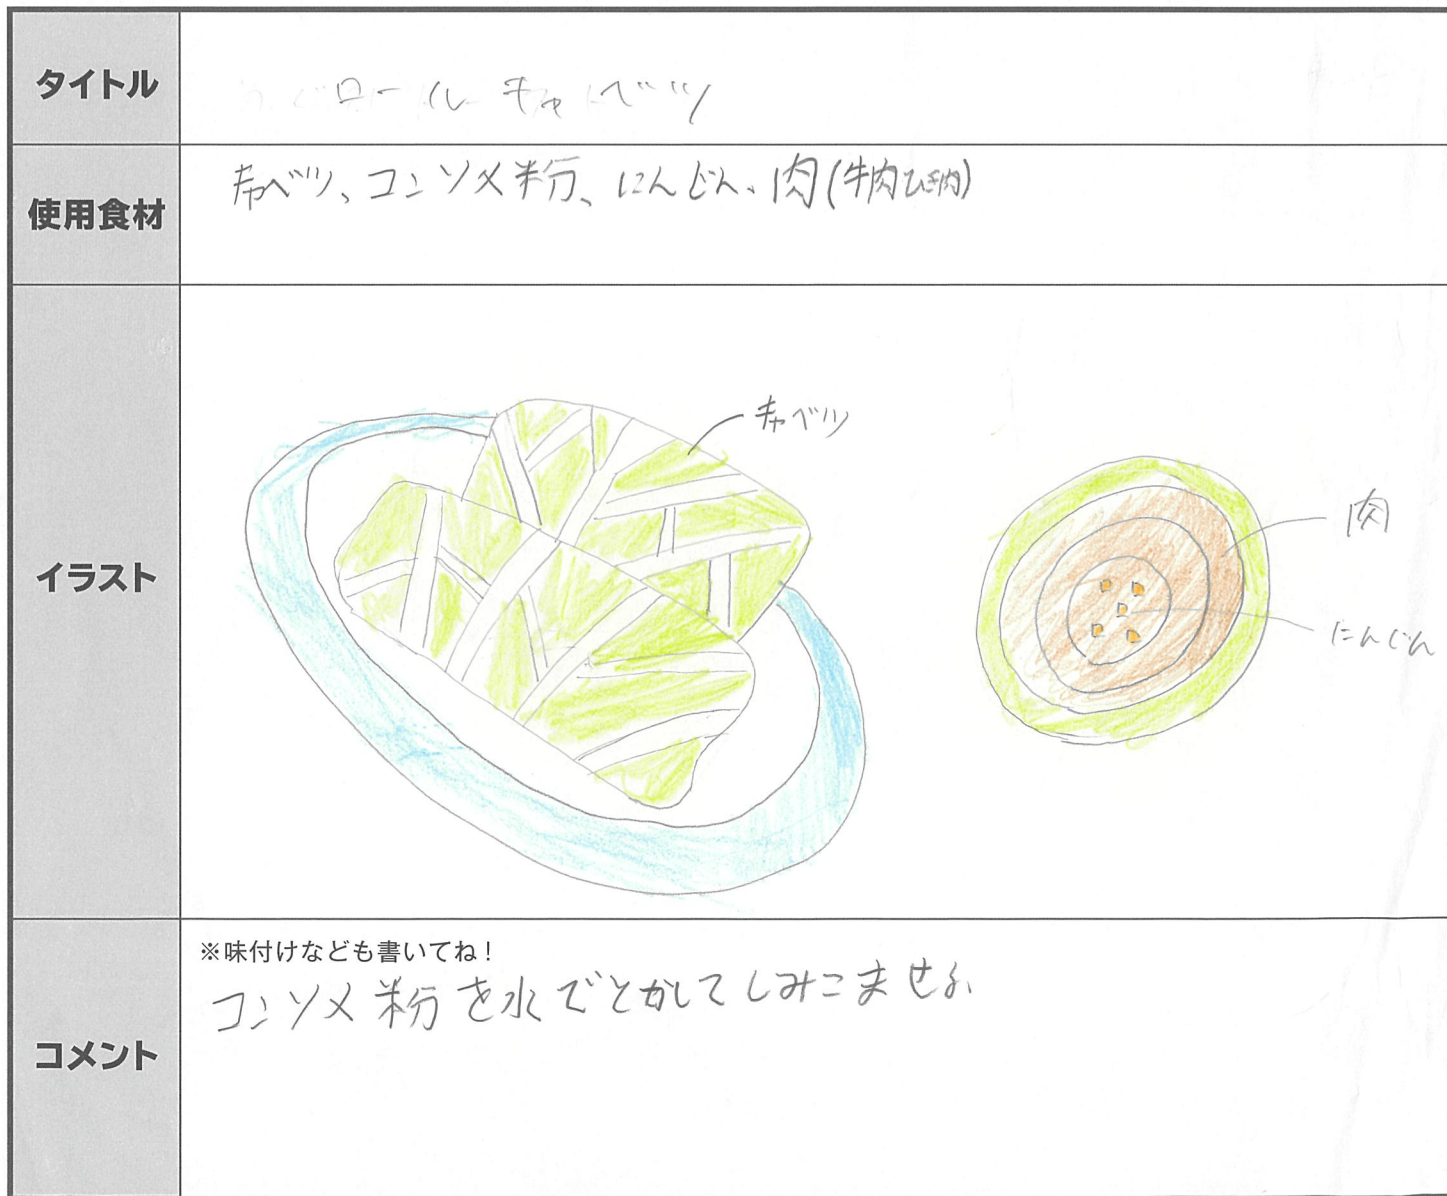 タイトル
ロールキャベツ
使用食材
キャベツ、コンソメ粉、にんじん、肉(牛肉ひき肉)
イラスト
キャベツ
肉
にんじん
コメント
※味付けなども書いてね!
コンソメ粉を水でとかしてしみこませる。